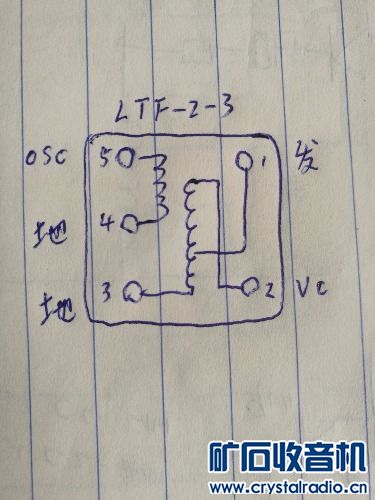 LTF-2-3
OSC 5 1 发
地 4
地 3 2 VC
矿石收音机
www.crystalradio.cn